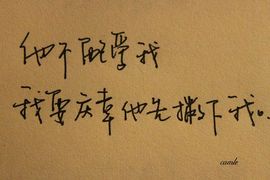 他不能爱我
我要庆幸他先撇下我。
camle